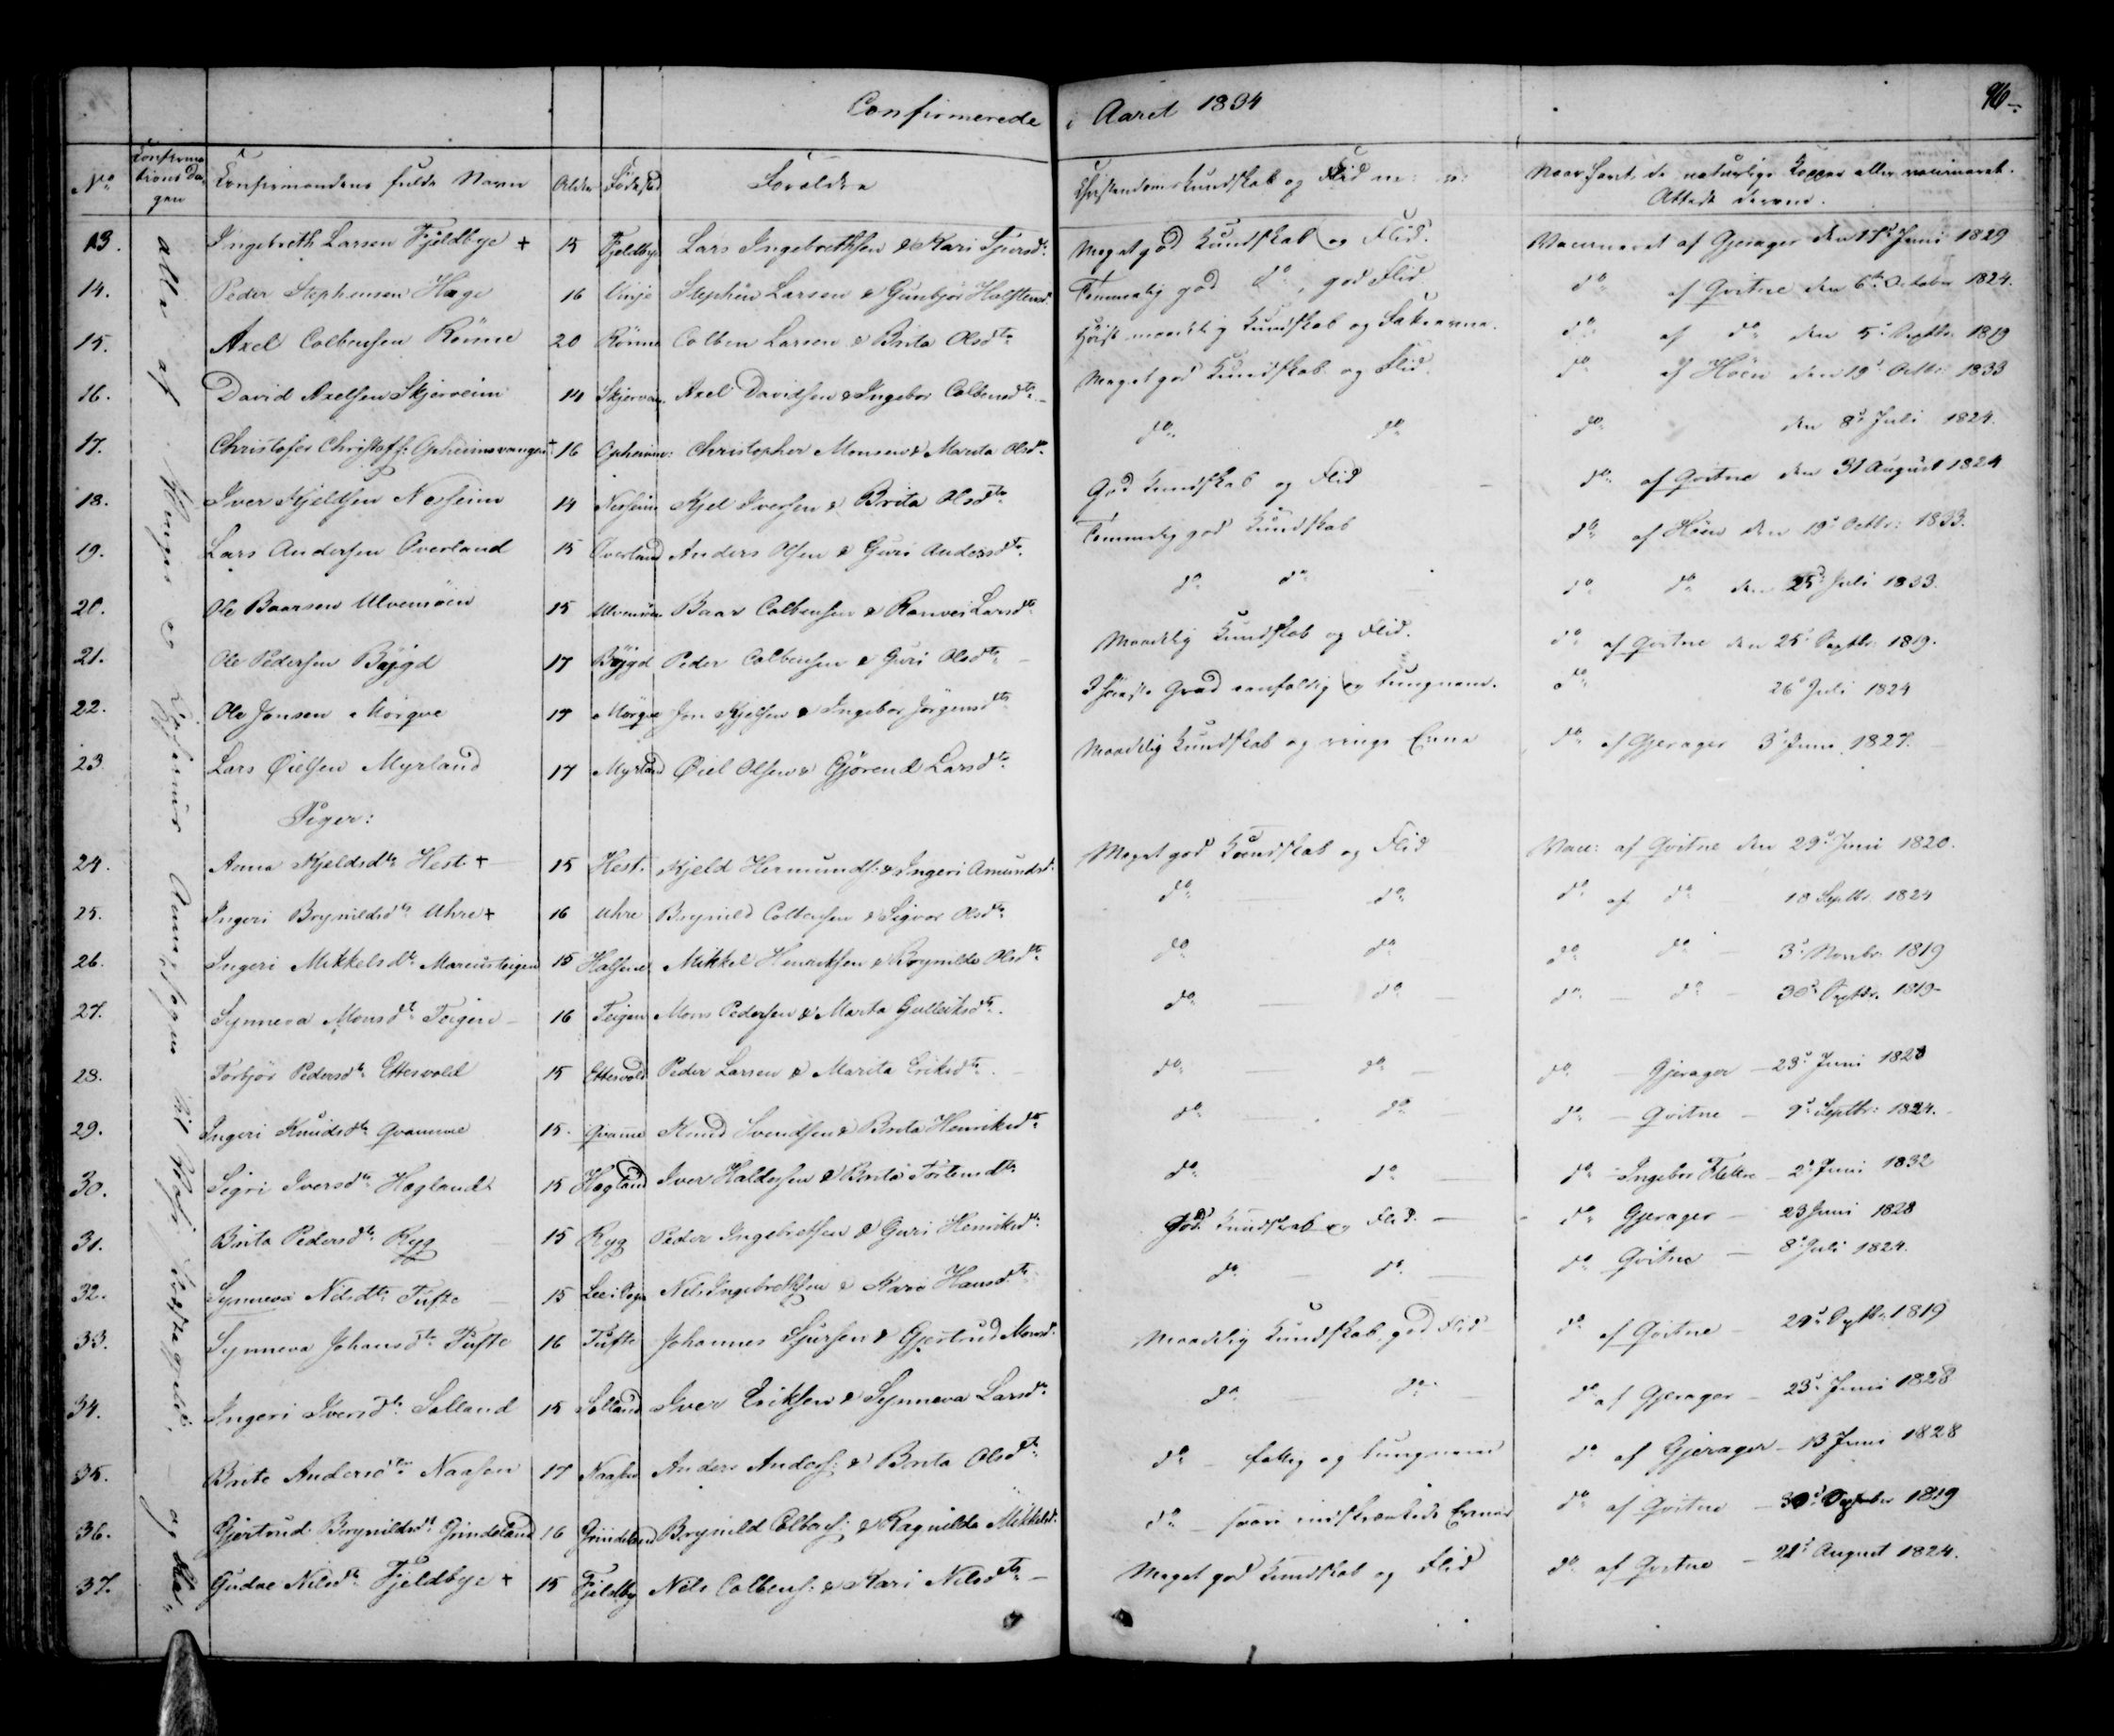 Confirmerede i Aaret 1834
96
No Confirmations Dagen Confirmandens fulde Navn Alder Fødested Forældre Christendomskundskab og Flid Naar havt de naturlige Kopper eller vaccineret. Attest derom.
13. Ingebreth Larsen Fjeldbye + 15 Fjeldbye Lars Ingebrethsen & Kari Sjursd. Meget god Kundskab og Flid. Vaccineret af Gjerager den 17d Juni 1829
14. Peder Stephensen Hage 16 Vinje Stephen Larsen & Gunbjør Halstensd. Temmelig god do, god Flid do af Qvitne den 6te October 1824.
15. Axel Colbensen Rönne 20 Rönne Colben Larsen & Brita Olsdtr Høist maadelig Kundskab og do af do den 5d Septbr. 1819
16. David Axelsen Skjerveim 14 Skjerveim Axel Davidsen & Ingebor Colbensdtr Meget god Kundskab og Flid. do af Höen den 19d Octbr. 1833
17. Christofer Christoffs: Opheimsvangen + 16 Opheims: Christopher Monsen & Marita Olsdr do do do den 8d Juli 1824.
18. Iver Kjeldsen Nesheim 14 Nesheim Kjel Iversen & Brita Olsdtr God Kundskab og Flid do af Qvitne den 31 August 1824
19. Lars Andersen Overland 15 Overland Anders Olsen & Guri Andersdtr Temmelig god Kundskab do af Höen den 19d Octbr: 1833.
20. Ole Baarsen Ulvemöen 15 Ulvemöen Baar Colbensen & Ranvei Larsdtr do do do do den 25d Juli 1833.
21. Ole Pedersen Bøygd 17 Bøygd Peder Colbensen & Guri Olsdtr Maadelig Kundskab og Flid. do af Qvitne den 25d Septbr. 1819.
22. Ole Jonsen Mörqve 17 Mörqve Jon Kjelsen & Ingebor Jörgensdtr I høieste Grad eenfoldig og tungnem. do 26d Juli 1824
23 Lars Øielsen Myrland 17 Myrland Øiel Olsen & Gjörend Larsdtr Maadelig Kundskab og ringe Evne do af Gjerager 3d Juni 1827.
Piger:
24. Anna Kjeldsdtr Hest + 15 Hest. Kjeld Hermunds: & Ingeri Amundsd. Meget god Kundskab og Flid Vacc: af Qvitne den 29d Juni 1820.
25. Ingeri Brynildsdtr Uhre + 16 Uhre Brynild Colbensen & Sigvor Olsdtr do do do af do 18 Septbr. 1824
26. Ingeri Mikkelsdtr Marcusteigen 15 Halsene Mikkel Henriksen & Brynilde Olsdtr do do do do 3d Novbr. 1819
27. Synneva Monsdtr Teigen 16 Teigen Mons Pedersen & Marta Gulleiksdtr. do do do do 30d Septbr. 1819
28. Torbjör Pedersdtr Ettesvold 15 Ettesvold Peder Larsen & Marita Eriksdtr. do do do Gjerager 23d Juni 1828
29. Ingeri Knudsdtr Qvamme 15. Qvamme Knud Svendsen & Brita Henriksdtr do do do Qvitne 9d Septbr: 1824.
30. Sigri Iversdtr Hagland 15 Hagland Iver Haldorsen & Brita Astensdtr do do do Ingebor Flettre 2d Juni 1832
31. Brita Pedersdtr Ryg 15 Ryg Peder Ingebretsen & Guri Henriksdtr God Kundskab og Flid. do Gjerager 23 Juni 1828
32. Synneva Nilsdtr Tufte 15 Nils Ingebrethsen & Kari Hansdtr do do do Qvitne 8d Juli 1824.
33. Synneva Johansdtr Tufte 16 Tufte Johannes Sjursen & Gjertrud Monsd. Maadelig Kundskab, god Flid do af Qvitne 29d Septbr. 1819
34. Ingeri Iversdtr Salland 15 Salland Iver Eriksen & Synneva Larsdr do do do af Gjerager 23d Juni 1828
35. Brite Andersdtr Naasen 17 Naasen Anders Anders: & Brita Olsdtr do fattig og tungnem do af Gjerager 13 Juni 1828
36. Gjertrud Brynildsdt Grindeland 16 Grindeland Brynild Colbens: & Ragnilda Mikkelsd. do indskrænkede Evner do af Qvitne 30d September 1819
37. Gudve Nilsdtr Fjeldbye + 15 Fjeldby Nils Colbens: & Kari Nilsdtr Meget god Kundskab og Flid do af Qvitne 21d August 1824.